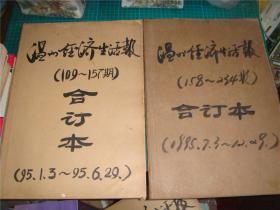 温州经济生活报
(109～157期)
合订本
(95.1.3～95.6.29.)
温州经济生活报
(158～234期)
合订本
(1995.7.3～12.29.)